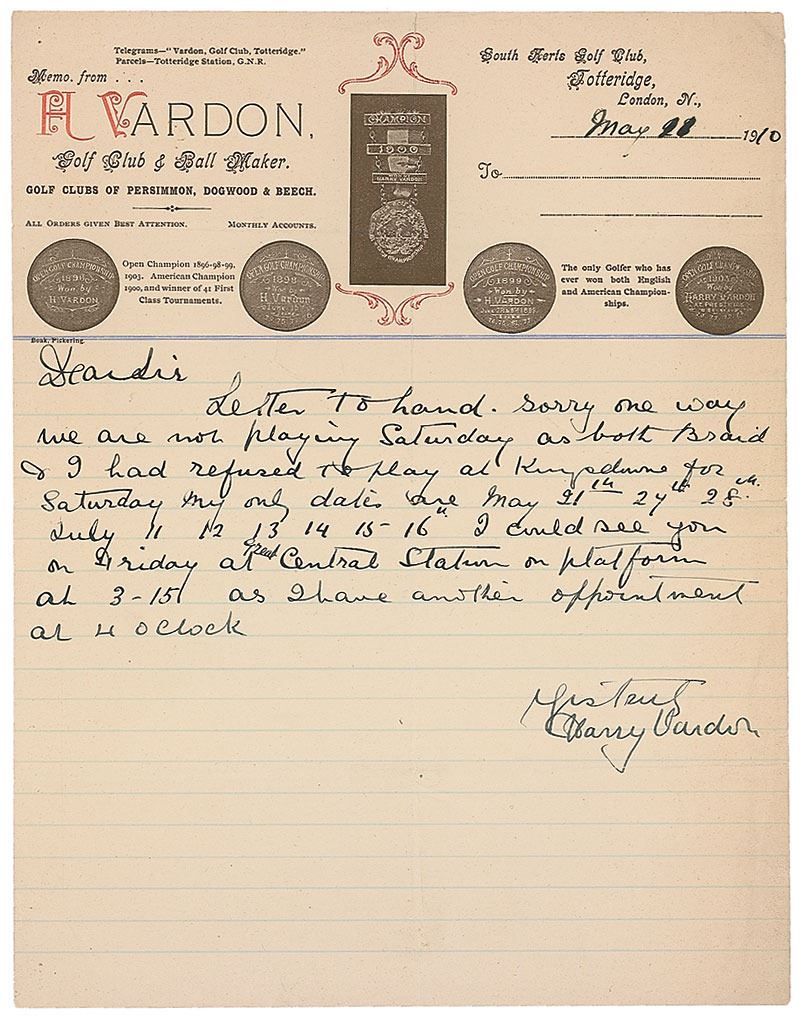 Telegrams—"Vardon, Golf Club, Totteridge."
Parcels—Totteridge Station, G.N.R.
Memo. from . . .
H. VARDON,
Golf Club & Ball Maker.
GOLF CLUBS OF PERSIMMON, DOGWOOD & BEECH.
ALL ORDERS GIVEN BEST ATTENTION. MONTHLY ACCOUNTS.
CHAMPION
1900
HARRY VARDON
South Herts Golf Club,
Totteridge,
London, N.,
May 1910
To
OPEN GOLF CHAMPIONSHIP
1896
Won by
H. VARDON
Open Champion 1896-98-99,
1903. American Champion
1900, and winner of 41 First
Class Tournaments.
OPEN GOLF CHAMPIONSHIP
1898
Won by
H. Vardon
OPEN GOLF CHAMPIONSHIP
1899
Won by
H. VARDON
The only Golfer who has
ever won both English
and American Champion-
ships.
OPEN GOLF CHAMPIONSHIP
Won by
HARRY VARDON
Beak, Pickering.
Dear Sir
Letter to hand. sorry one way
we are not playing Saturday as both Braid
& I had refused to play at Kingsdowne for
Saturday my only dates are May 21th 27th 28th.
July 11 12 13 14 15- 16" I could see you
on Friday at Great Central Station on platform
at 3-15 as I have another appointment
at 4 oClock
Harry Vardon